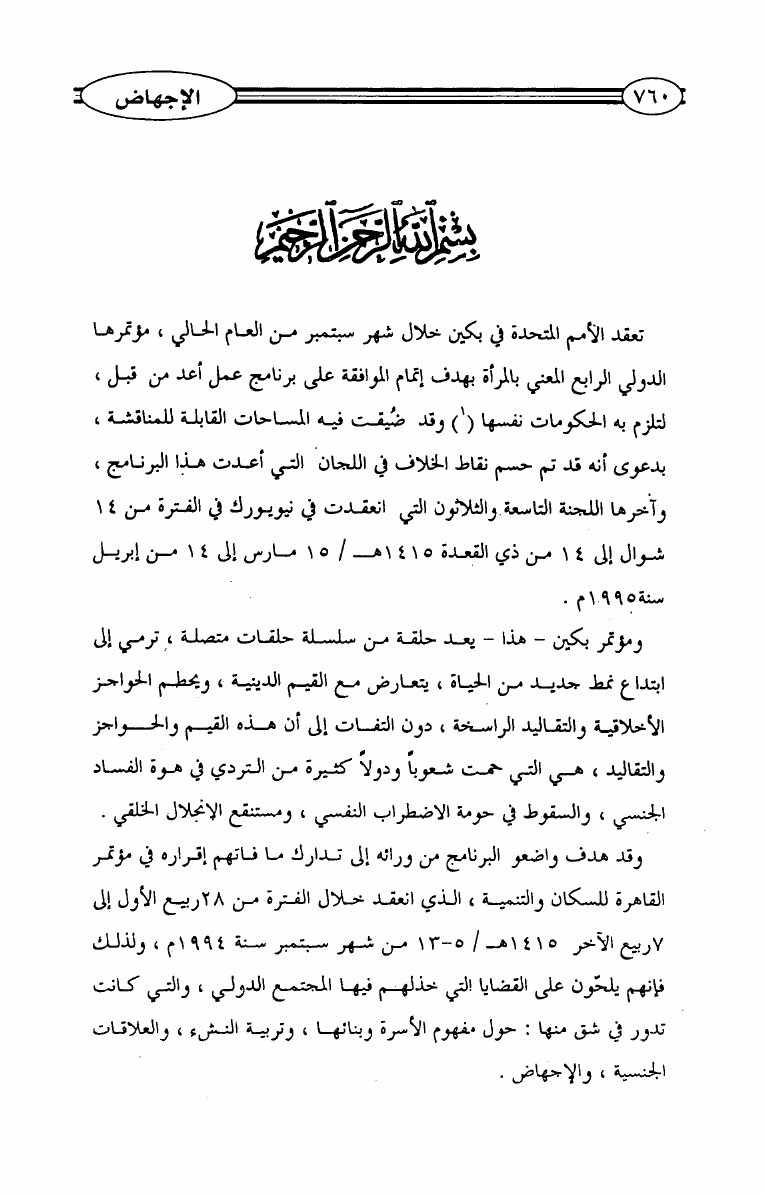 ٧٦٠
الإجهاض
بسم الله الرحمن الرحيم
تعقد الأمم المتحدة في بكين خلال شهر سبتمبر من العام الحالي ، مؤتمرها
الدولي الرابع المعني بالمرأة بهدف إتمام الموافقة على برنامج عمل أعد من قبل ،
لتلزم به الحكومات نفسها (١) وقد ضُيقت فيه المساحات القابلة للمناقشة ،
بدعوى أنه قد تم حسم نقاط الخلاف في اللجان التي أعدت هذا البرنامج ،
وآخرها اللجنة التاسعة والثلاثون التي انعقدت في نيويورك في الفترة من ١٤
شوال إلى ١٤ من ذي القعدة ١٤١٥هـ / ١٥ مارس إلى ١٤ من إبريل
سنة١٩٩٥م .
ومؤتمر بكين – هذا – يعد حلقة من سلسلة حلقات متصلة ، ترمي إلى
ابتداع نمط جديد من الحياة ، يتعارض مع القيم الدينية ، ويحطم الحواجز
الأخلاقية والتقاليد الراسخة ، دون التفات إلى أن هذه القيم والحواجز
والتقاليد ، هي التي حمت شعوباً ودولاً كثيرة من التردي في هوة الفساد
الجنسي ، والسقوط في حومة الاضطراب النفسي ، ومستنقع الانحلال الخلقي .
وقد هدف واضعو البرنامج من ورائه إلى تدارك ما فاتهم إقراره في مؤتمر
القاهرة للسكان والتنمية ، الذي انعقد خلال الفترة من ٢٨ربيع الأول إلى
٧ربيع الآخر ١٤١٥هـ / ٥-١٣ من شهر سبتمبر سنة ١٩٩٤م ، ولذلك
فإنهم يلحّون على القضايا التي خذلهم فيها المجتمع الدولي ، والتي كانت
تدور في شق منها : حول مفهوم الأسرة وبنائها ، وتربية النشء ، والعلاقات
الجنسية ، والإجهاض .